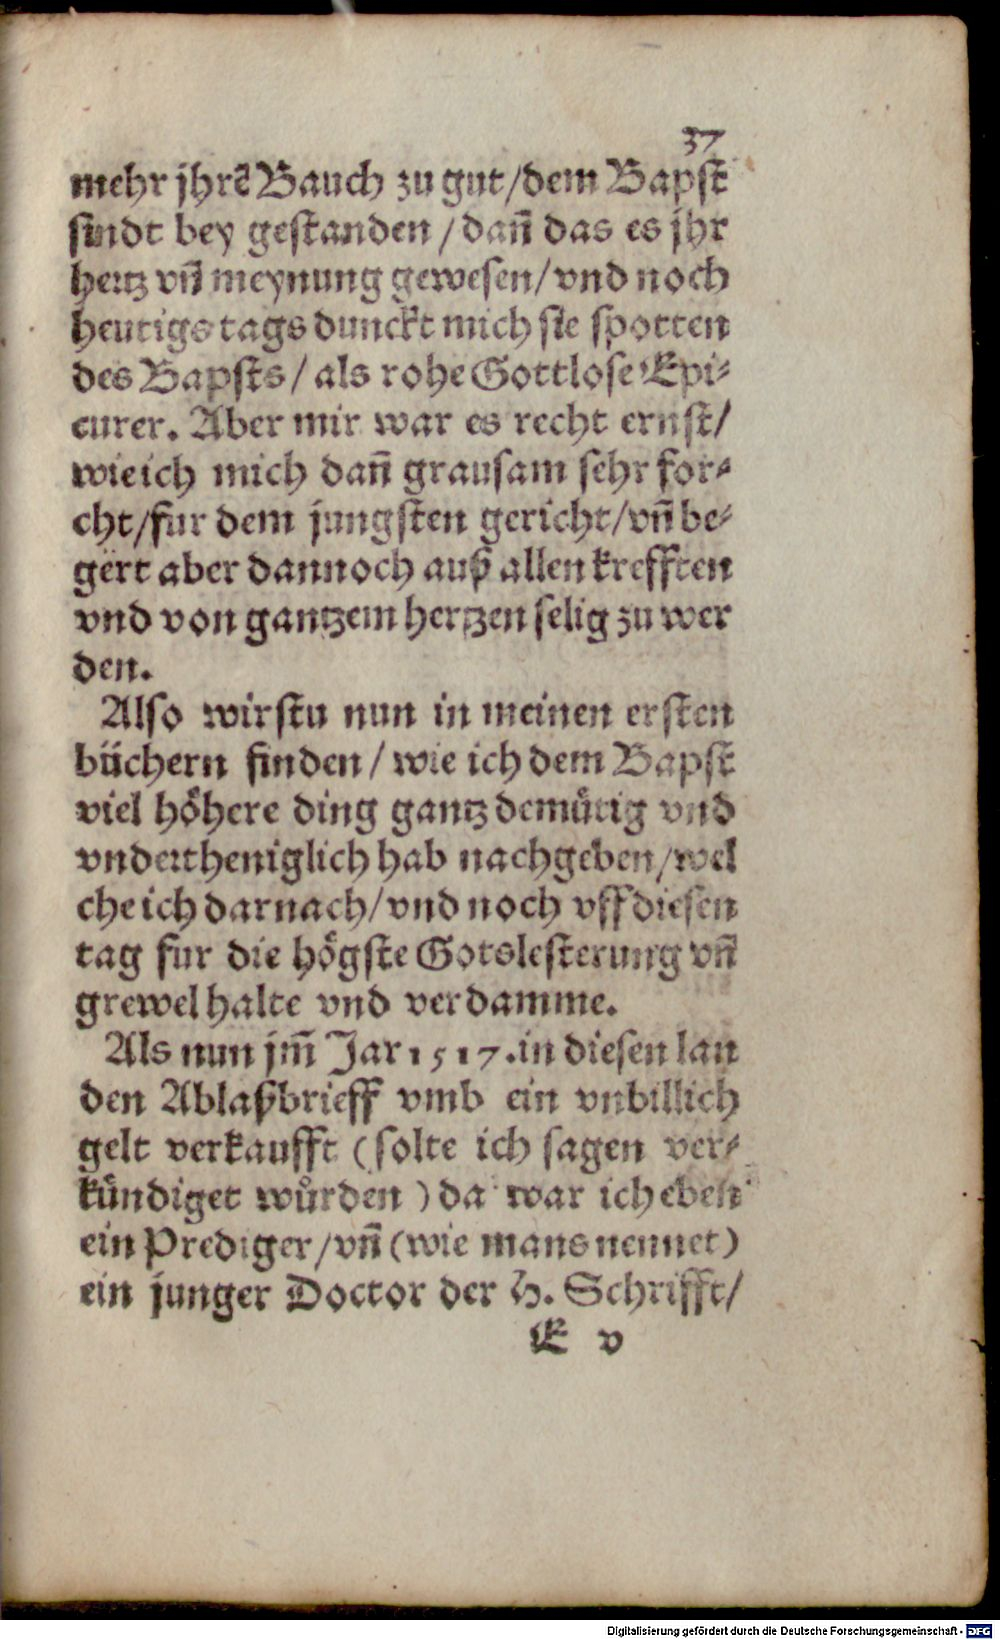 37
mehr jhrē Bauch zu gut/dem Bapst
sindt bey gestanden/dañ das es jhr
hertz vñ meynung gewesen/vnd noch
heutigs tags dunckt mich sie spotten
des Bapsts/als rohe Gottlose Epi-
curer. Aber mir war es recht ernst/
wie ich mich dañ grausam sehr for-
cht/fur dem jungsten gericht/vñ be-
gert aber dannoch auß allen krefften
vnd von gantzem hertzen selig zu wer
den.
Also wirstu nun in meinen ersten
büchern finden/wie ich dem Bapst
viel höhere ding gantz demütig vnd
vndertheniglich hab nachgeben/wel
che ich darnach/vnd noch vff diesen
tag fur die högste Gotslesterung vñ
grewel halte vnd verdamme.
Als nun jm̃ Jar 1517. in diesen lan
den Ablaßbrieff vmb ein vnbillich
gelt verkaufft (solte ich sagen ver-
kündiget würden) da war ich eben
ein Prediger/vñ (wie mans nennet)
ein junger Doctor der H. Schrifft/
E v
Digitalisierung gefördert durch die Deutsche Forschungsgemeinschaft - DFG